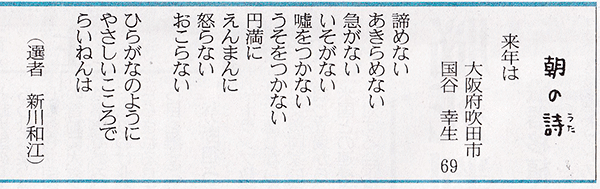 朝の詩
うた
来年は
大阪府吹田市
国谷 幸生 69
諦めない
あきらめない
急がない
いそがない
嘘をつかない
うそをつかない
円満に
えんまんに
怒らない
おこらない
ひらがなのように
やさしいこころで
らいねんは
（選者 新川和江）